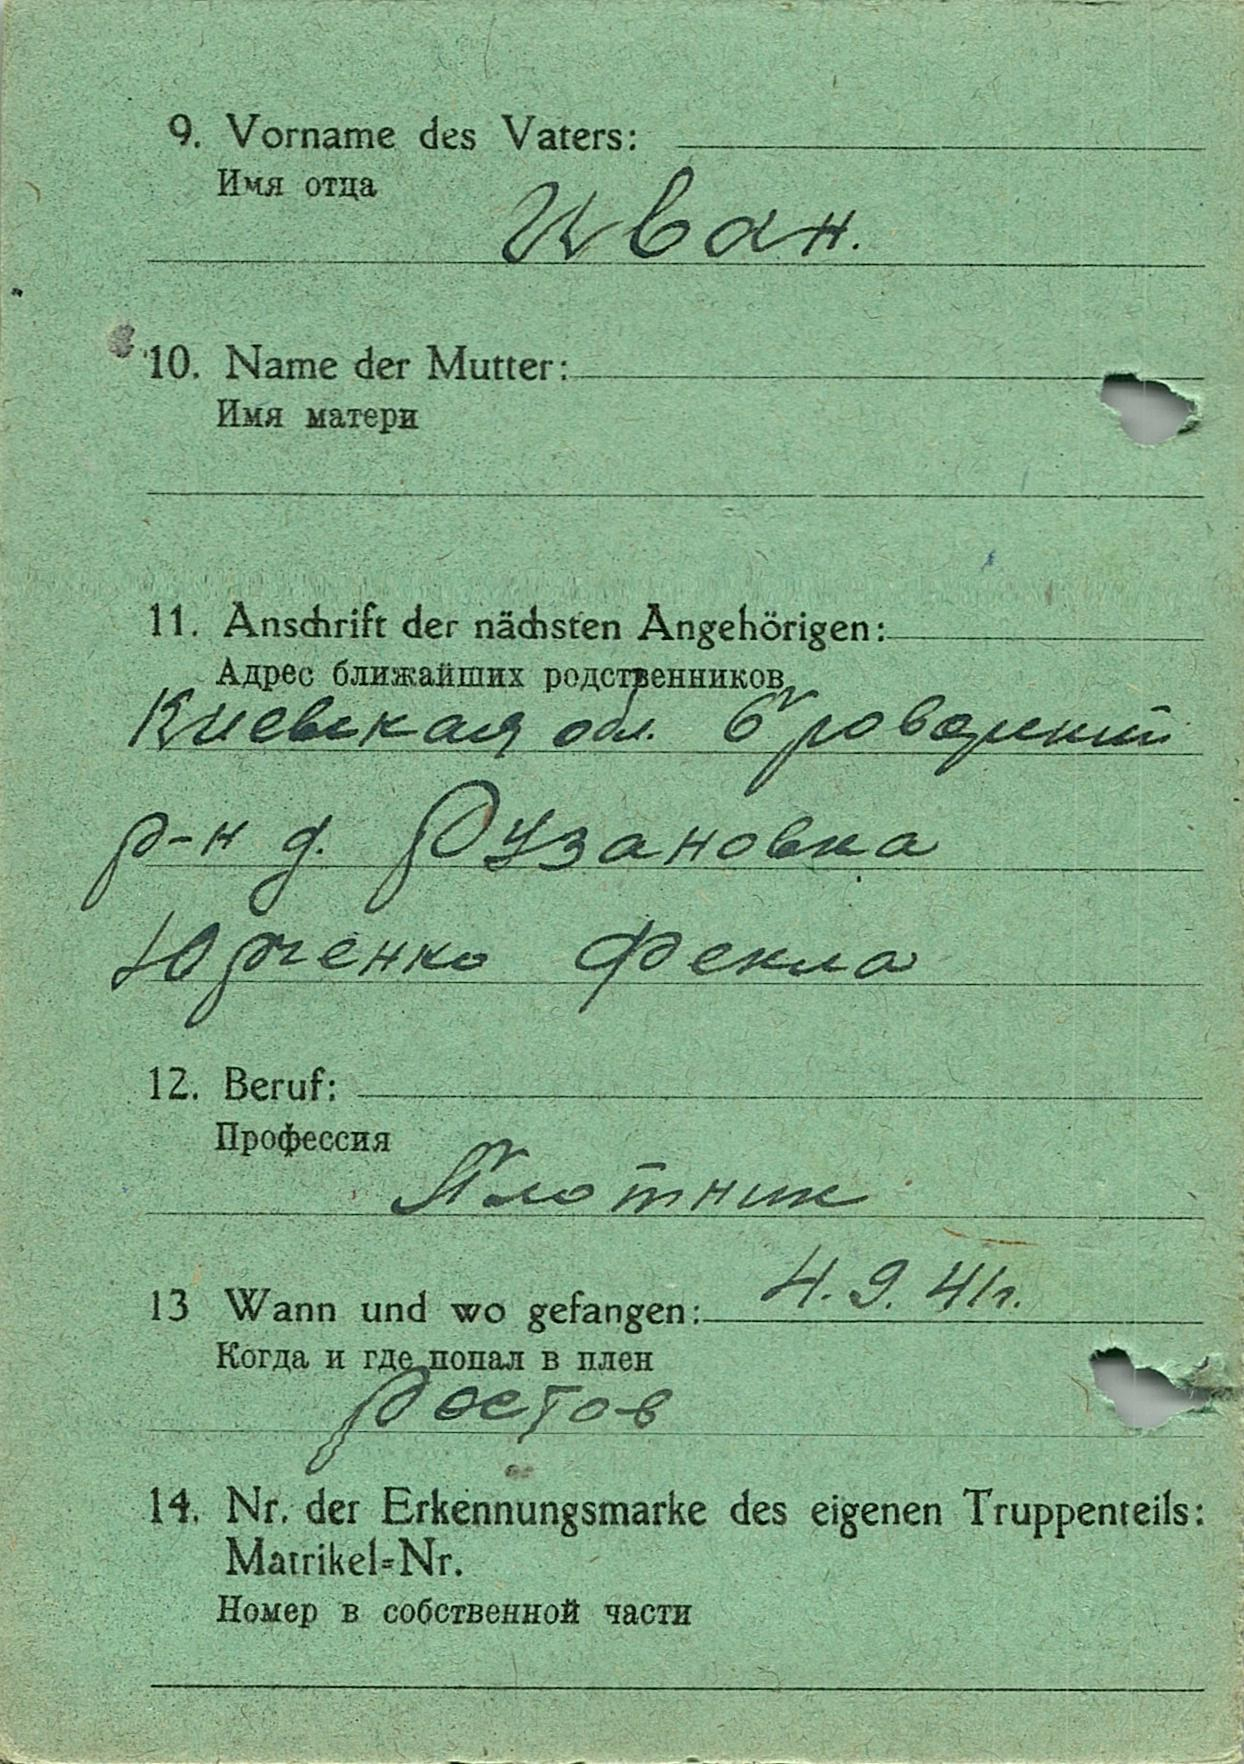 9. Vorname des Vaters:
Имя отца
Иван.
10. Name der Mutter:
Имя матери
11. Anschrift der nächsten Angehörigen:
Адрес ближайших родственников
Киевская обл.
р-н д. Рузановка
Юрченко Фекла
12. Beruf:
Профессия
Плотник
13 Wann und wo gefangen: 4.9.41г.
Когда и где попал в плен
Ростов
14. Nr. der Erkennungsmarke des eigenen Truppenteils:
Matrikel=Nr.
Номер в собственной части